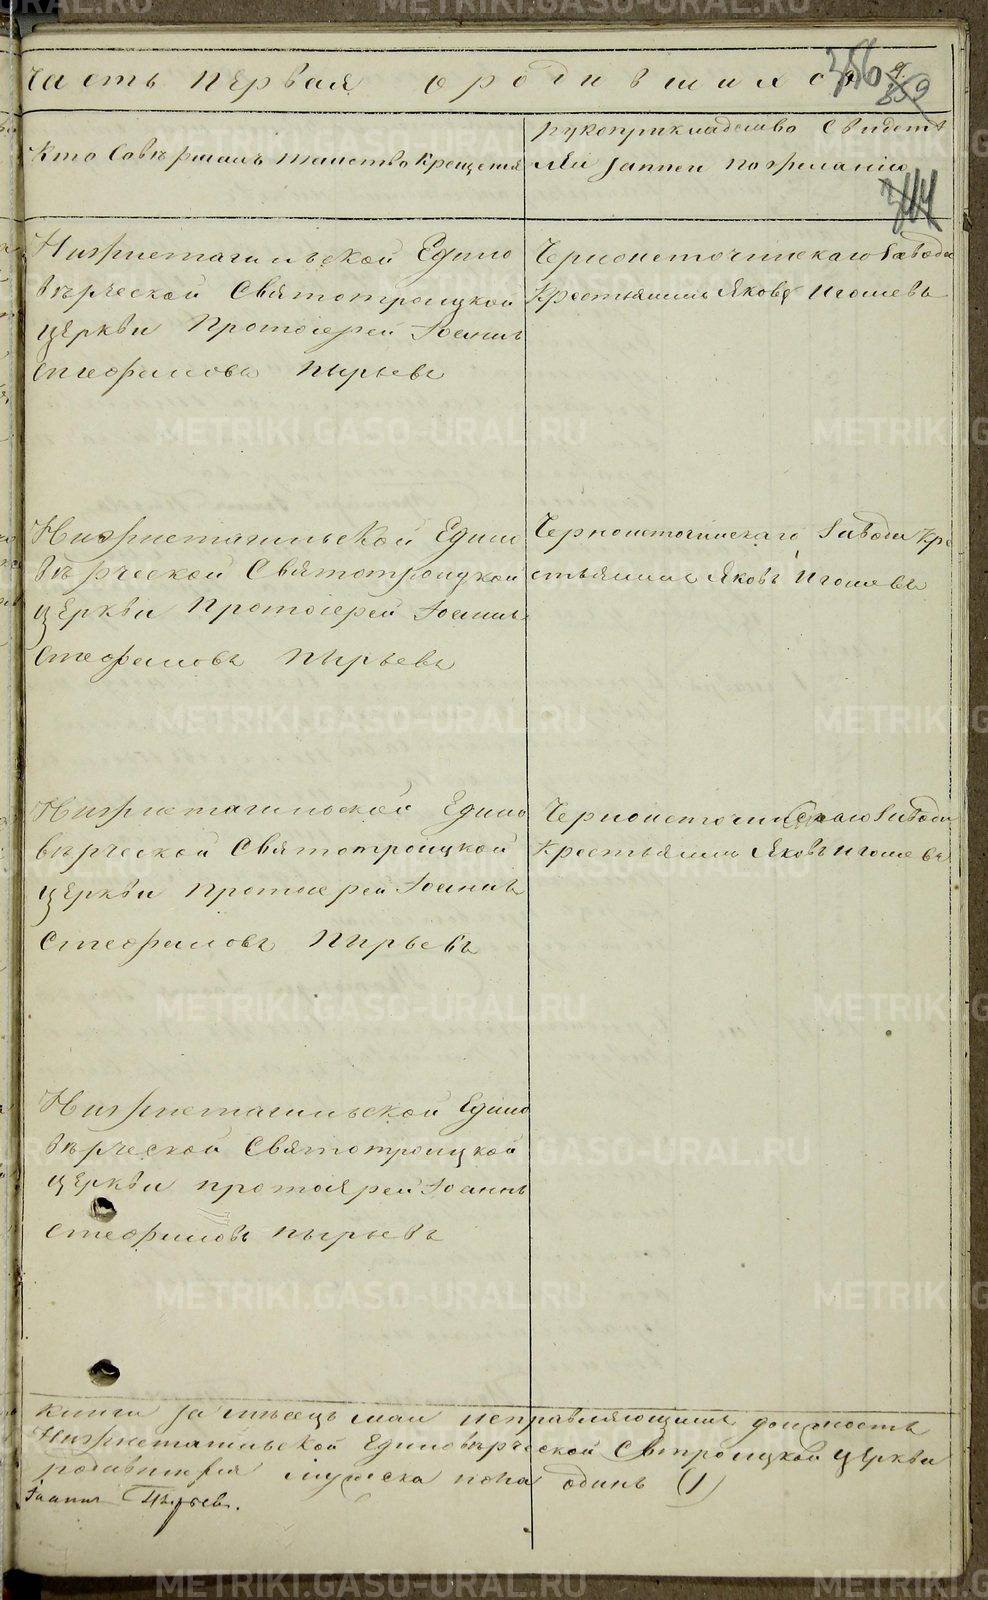 Часть первая о родившихся
356
Кто совершалъ таинство крещенія
рукоприкладство свидете
лей записи по желанію
344
Нижнетагильской Едино
вѣрческой Святотроицкой
церкви Протоіерей Іоаннъ
Стефановъ Пырьевъ
Черноисточинскаго Завода
Крестьянинъ Яковъ Игошевъ
Нижнетагильской Едино
вѣрческой Святотроицкой
церкви Протоіерей Іоаннъ
Стефановъ Пырьевъ
Черноисточинскаго Завода Кре
стьянинъ Яковъ Игошевъ
Нижнетагильской Едино
вѣрческой Святотроицкой
церкви Протоіерей Іоаннъ
Стефановъ Пырьевъ
Черноисточинскаго Завода
Крестьянинъ Яковъ Игошевъ
Нижнетагильской Едино
вѣрческой Святотроицкой
церкви протоіерей Іоаннъ
Стефановъ Пырьевъ
книги за мѣсецъ маи исправляющимъ должность
Нижнетагильской Единовѣрческой Свтроицкой церкви
родившихся мужска пола одинъ (1)
Іоаннъ Пырьевъ.
METRIKI.GASO-URAL.RU